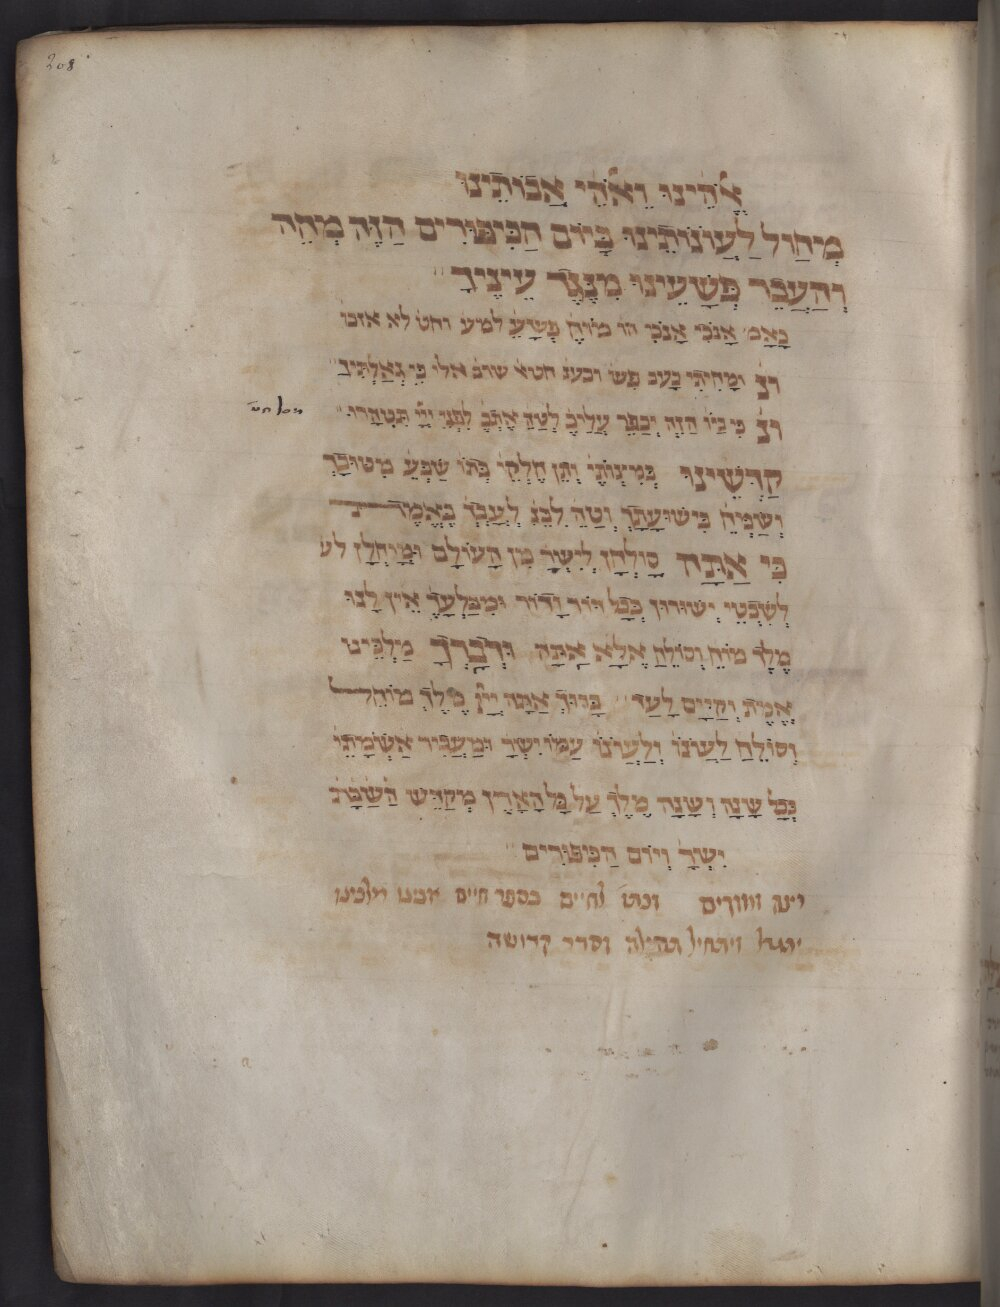 208
אֱלֹהֵינוּ וֵאלֹהֵי אֲבוֹתֵינוּ
מְחַול לַעֲוֹנוֹתֵינוּ בְּיוֹם הַכִּיפּוּרִים הַזֶּה מְחֵה
וְהַעֲבֵר פְּשָׁעֵינוּ מִנֶּגֶד עֵינֶיךָ
כָּאָמ׳ אָנֹכִי אָנֹכִי הו מוֹחֶה פְשָׁעֶ למע וחט לא אזכו
וְנֶ׳ מָחִיתִי כָעב פשׁ וכענ חטא שוב אלי כִּי גְאַלְתִּיךָ
וְנֶ׳ כי ביו הַזֶּה יְכַפֵּר עֲלֵיכֶ לְטַהֵ אֶתְכֶ לִפְנֵי יְיָ תִּטְהָרוּ
קַדְּשֵׁינוּ בְּמִצְוֹתֶי וְתֵן חֶלְקֵי בְּתוֹ שַׂבְּעֵ מִטּוּבָךְ
וְשַׂמְּחֵ בִּישׁוּעָתָךְ וְטַהֵ לִבֵּנ לְעָבְדְּ בֶּאֱמֶת
כִּי אַתָּה סָוֹלְחָן לְיִשְׂרָ מִן הָעוֹלָם וּמָוֹחְלָן לע
לְשִׁבְטֵי יְשׁוּרוּן בְּכָל דּוֹר וָדוֹר וּמִבַּלְעָדֶ אֵין לָנוּ
מֶלֶךְ מוֹחֵ וְסוֹלֵחַ אֶלָּא אַתָּה וּדְבָרְךָ מַלְכֵּינוּ
אֱמֶת וְקַיָּים לָעַד בָּרוּךְ אַתָּה יְיָ מֶלֶךְ מוֹחֵל
וְסוֹלֵחַ לַעֲוֹנוֹ וְלַעֲוֹנוֹ עַמּוֹ יִשְׂרָ וּמַעֲבִיר אַשְׁמָתֵי
בְּכָל שָׁנָה וְשָׁנָה מֶלֶךְ עַל כָּל הָאָרֶץ מְקַדֵּשׁ הַשַּׁבָּת
יִשְׂרָ וְיוֹם הַכִּיפּוּרִים
רצה ומודים וכתו׳ לחיים בספר חיים אבינו מלכינו
ויתחיל תהילה וסדר קדושה